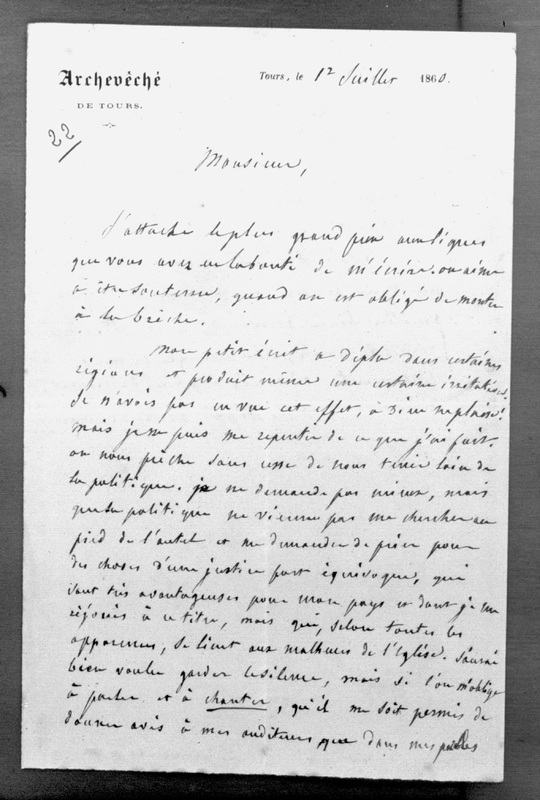 Archevêché
DE TOURS.
Tours, le 12 Juillet 1860.
22
Monsieur,
J'attache le plus grand prix aux lignes
que vous avez eu la bonté de m'écrire. on aime
à être soutenu, quand on est obligé de monter
à la brèche.
Mon petit écrit a déplu dans certaines
régions et produit même une certaine irritation.
Je n'avois pas en vue cet effet, à Dieu ne plaise!
mais je ne puis me repentir de ce que j'ai fait.
on nous prêche sans cesse de nous tenir loin de
la politique. je ne demande pas mieux, mais
que la politique ne vienne pas me chercher au
pied de l'autel et me demander de prier pour
des choses d'une justice fort équivoque, qui
sont très avantageuses pour mon pays et dont je me
réjouis à ce titre, mais qui, selon toutes les
apparences, se lient aux malheurs de l'Eglise. J'aurai
bien voulu garder le silence, mais si l'on m'oblige
à parler et à chanter, qu'il me soit permis de
donner avis à mes auditeurs que dans mes paroles